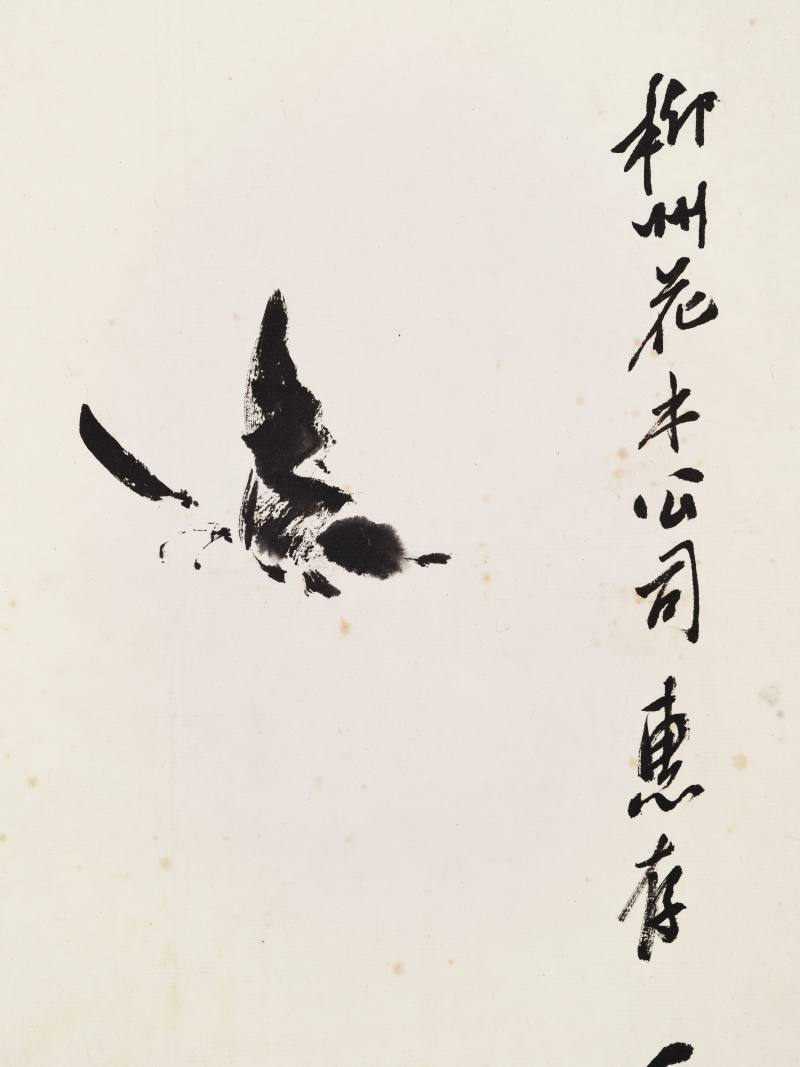 柳州花木公司惠存